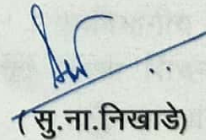 (सु.ना.निखाडे)